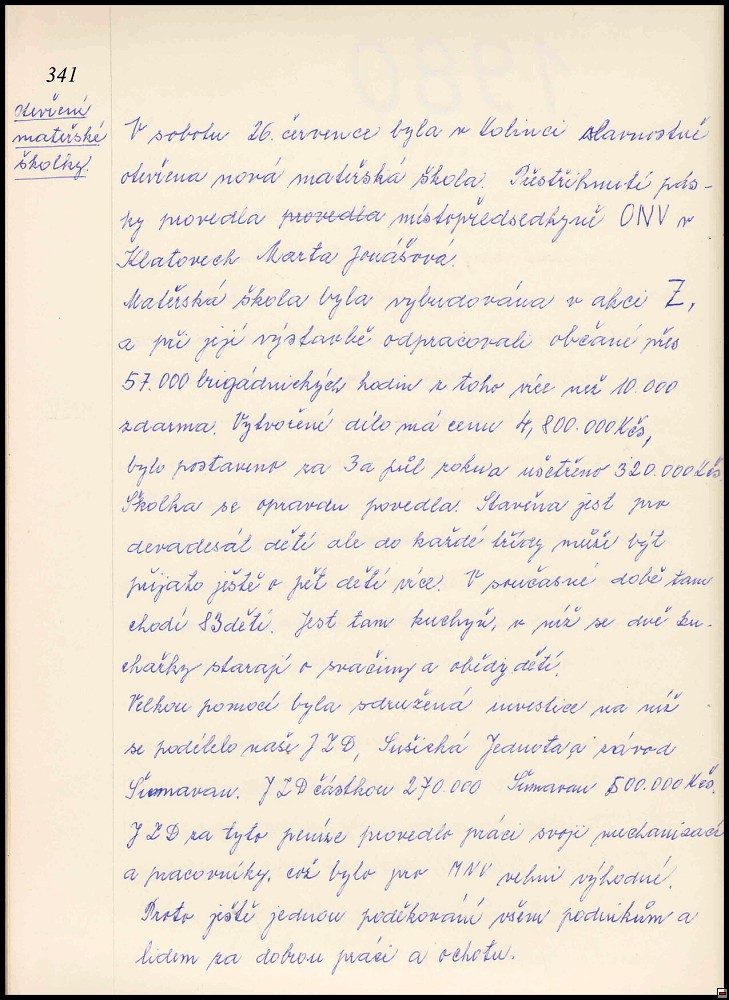 341
Otevření
mateřské
školky.
V sobotu 26. července byla v Kolinci slavnostně
otevřena nová mateřská škola. Přestřihnutí pás-
ky provedla provedla místopředsedkyně ONV v
Klatovech Marta Jonášová.
Mateřská škola byla vybudována v akci Z,
a při její výstavbě odpracovali občané přes
57.000 brigádnických hodin z toho více než 10.000
zdarma. Vytvořené dílo má cenu 4,800.000 Kčs,
bylo postaveno za 3 a půl roku a ušetřeno 320.000 Kčs.
Školka se opravdu povedla. Stavěna jest pro
devadesát dětí ale do každé třídy může být
přijato ještě o pět dětí více. V současné době tam
chodí 83 dětí. Jest tam kuchyň, v níž se dvě ku-
chařky starají o svačiny a obědy dětí.
Velkou pomocí byla sdružená investice na níž
se podílelo naše JZD, Sušická Jednota, a závod
Šumavan. JZD částkou 270.000 Šumavan 500.000 Kčs.
JZD za tyto peníze provedlo práci svojí mechanizací
a pracovníky, což bylo pro MNV velmi výhodné.
Proto ještě jednou poděkování všem podnikům a
lidem za dobrou práci a ochotu.